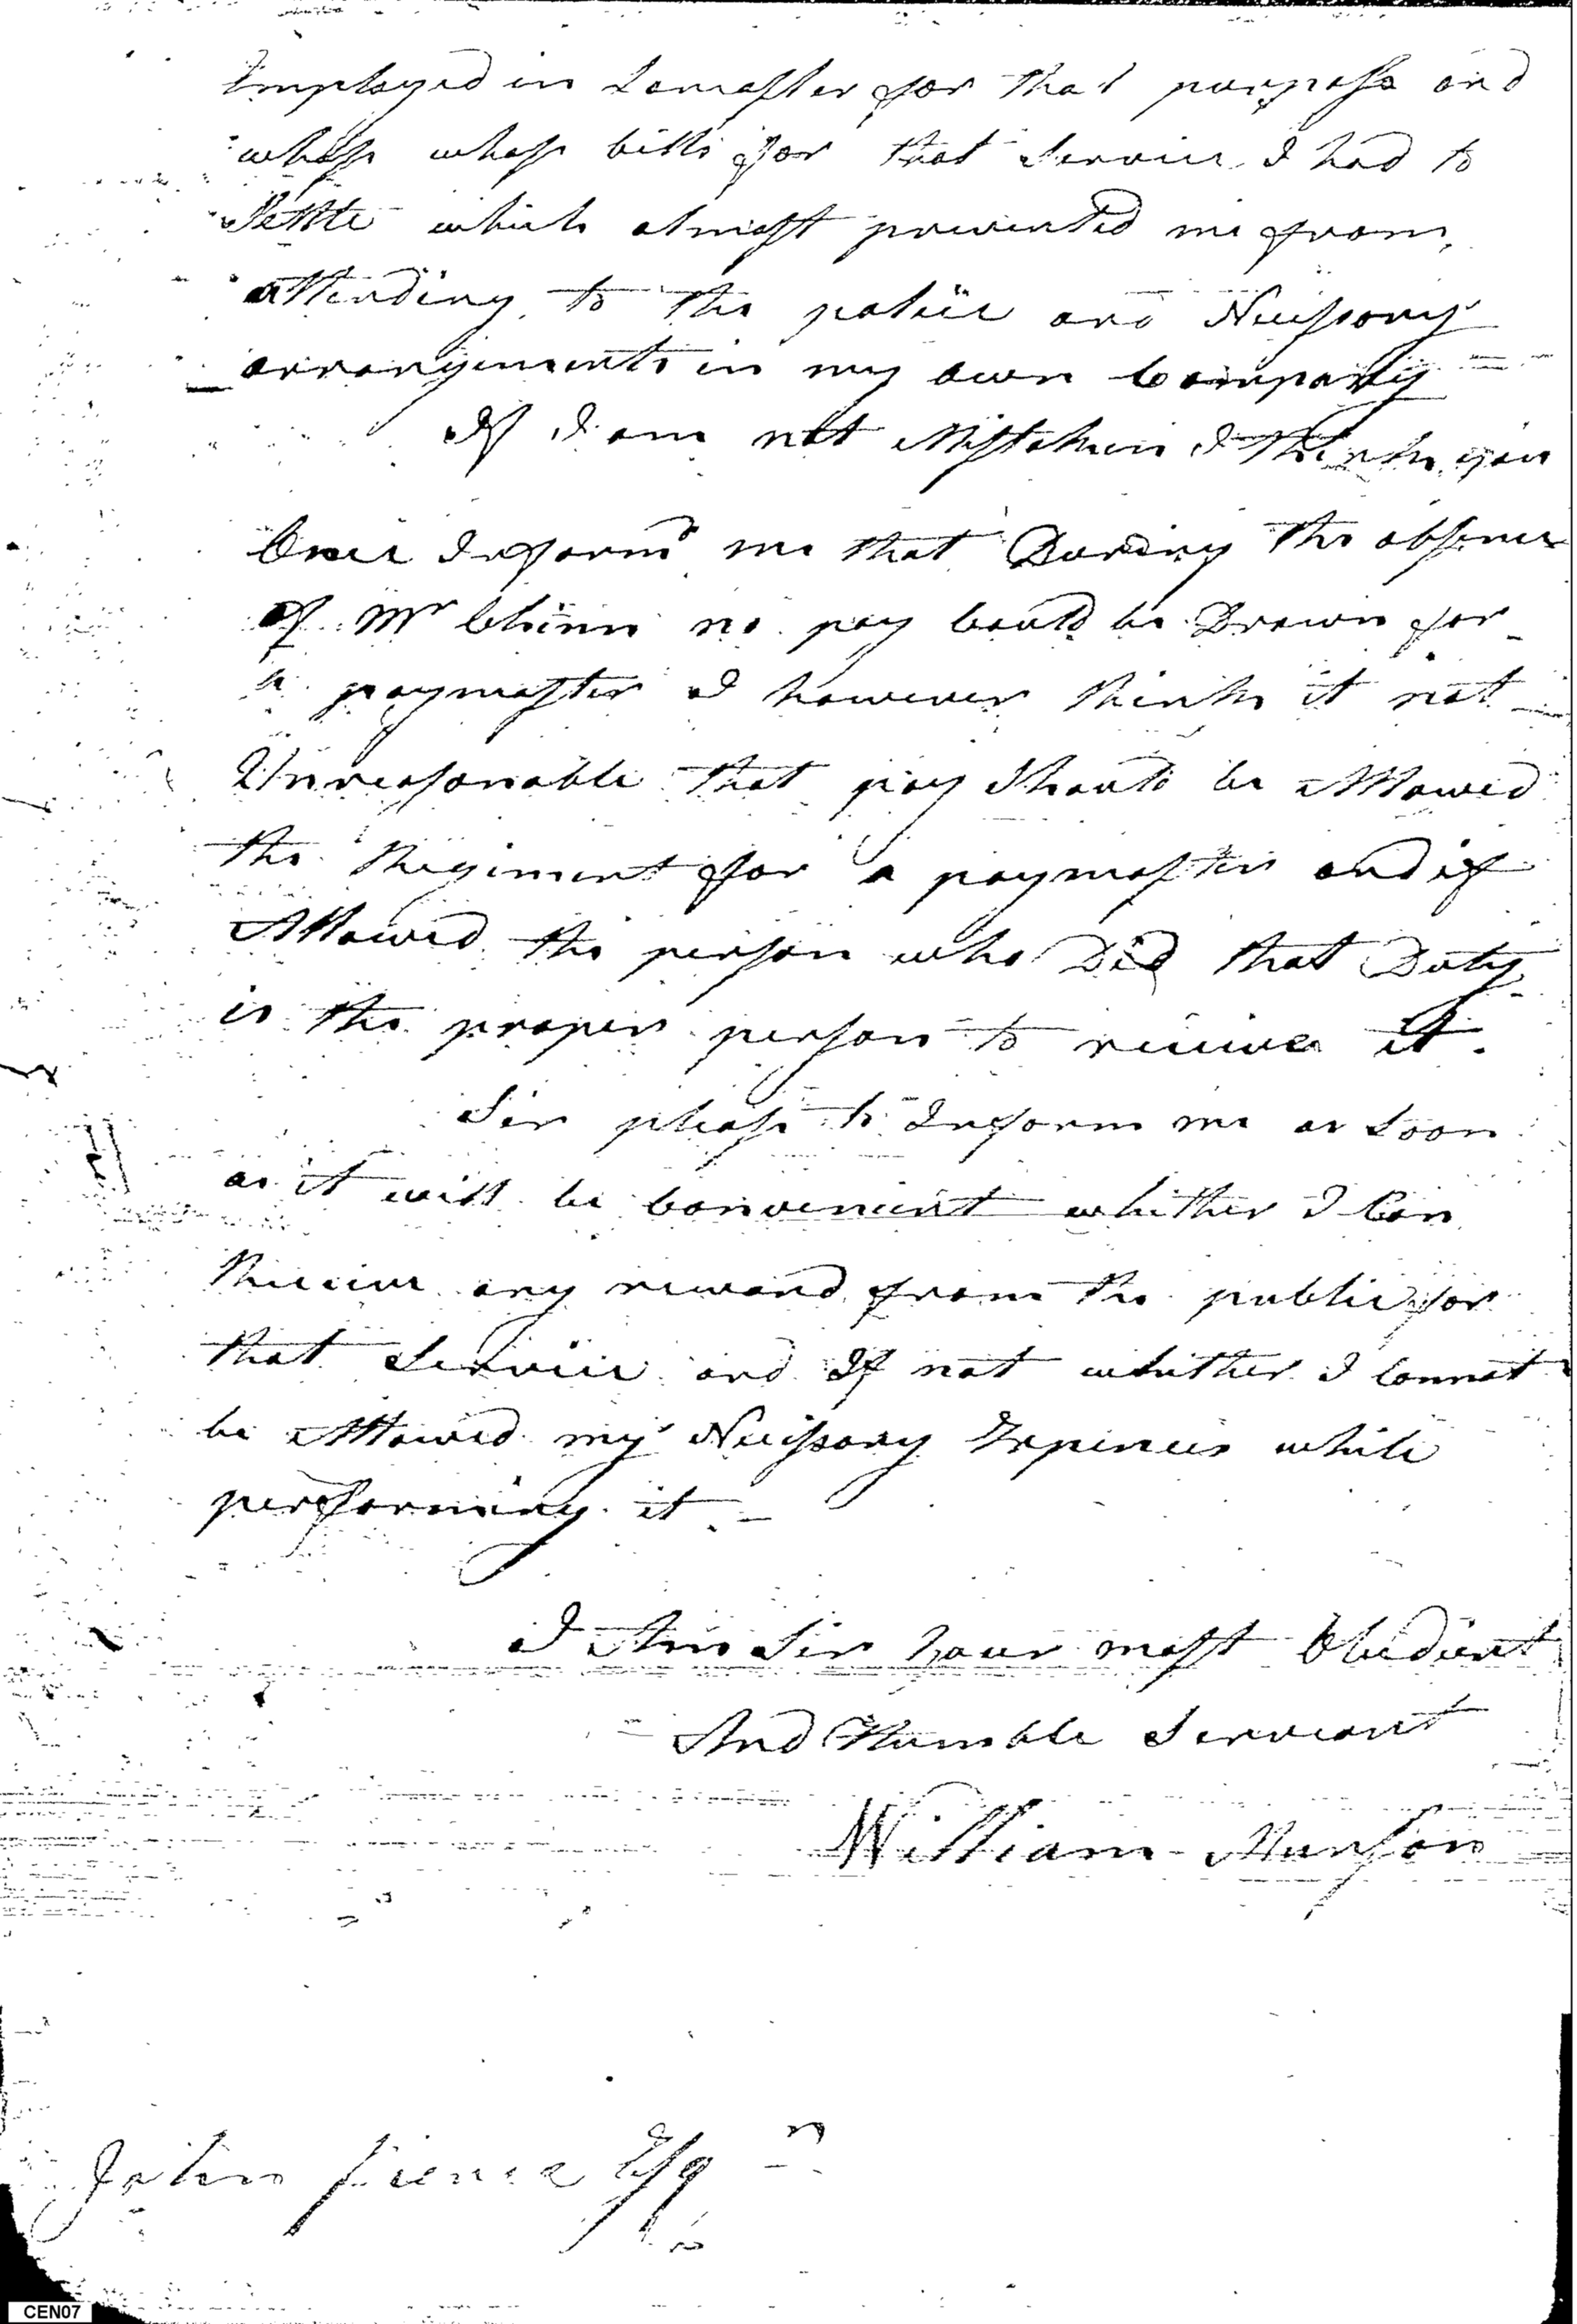 Employed in Lancaster for that purpose and
whose whose bills for that Service I had to
Settle which almost prevented me from
attending to the police and Necissary
arrangements in my own Company
If I am not Mistaken I think you
Once Inform'd me that During the absence
of Mr Chinn no pay Could be Drawn for
a paymaster I however think it not
Unreasonable that pay Should be Allowed
the Regiment for a paymaster and if
Allowed the person who Did that Duty
is the proper person to receive it.
Sir please to Inform me as Soon
as it will be Convenient whither I Can
Receive any reward from the public for
that Service and If not whither I Cannot
be Allowed my Necissary Expences while
performing it -
I Am Sir Your most Obedient
And Humble Serveant
William Munson
John Pierce Esqr
CEN07